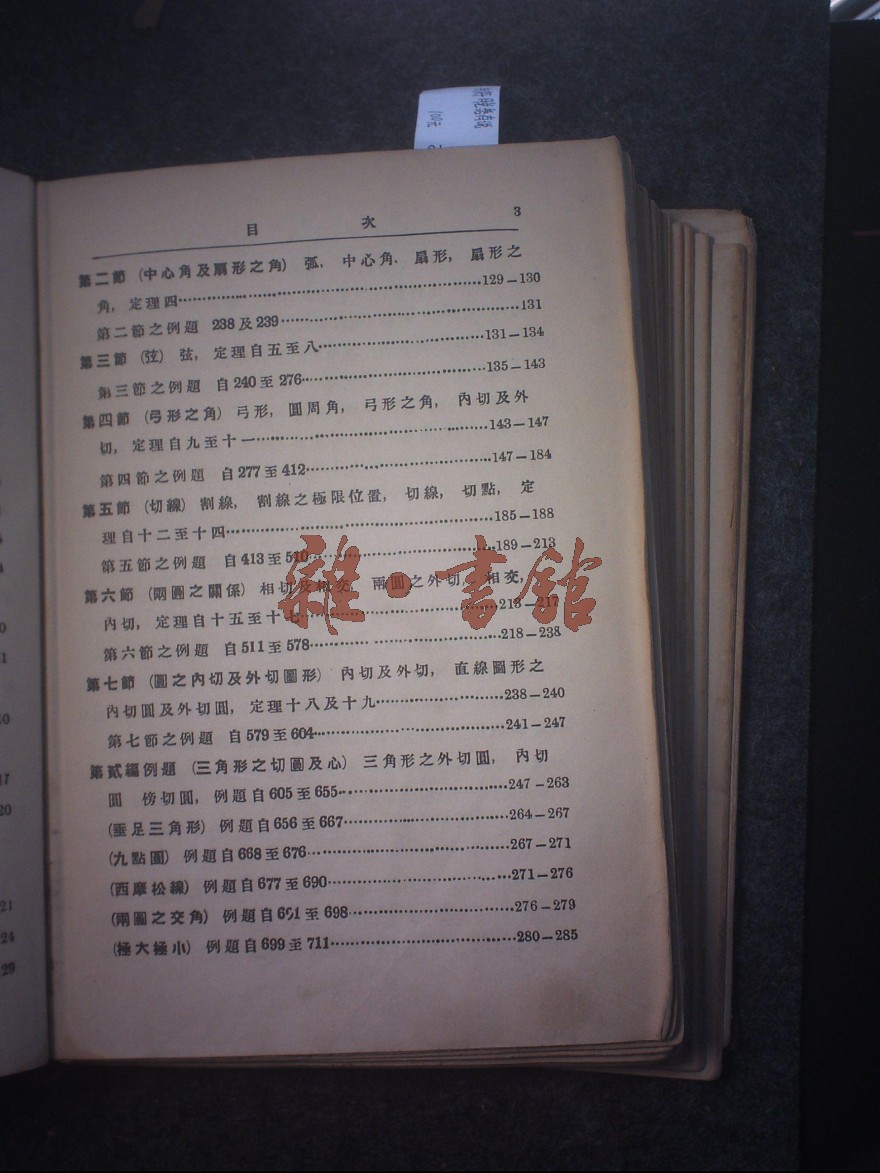 目 次 3
第二節 (中心角及扇形之角) 弧, 中心角, 扇形, 扇形之
角, 定理四……129—130
第二節之例題 238及239……131
第三節 (弦) 弦, 定理自五至八……131—134
第三節之例題 自240至276……135—143
第四節 (弓形之角) 弓形, 圓周角, 弓形之角, 內切及外
切, 定理自九至十一……143—147
第四節之例題 自277至412……147—184
第五節 (切線) 割線, 割線之極限位置, 切線, 切點, 定
理自十二至十四……185—188
第五節之例題 自413至510……189—213
第六節 (兩圓之關係) 相切及相交, 兩圓之外切, 相交,
內切, 定理自十五至十七……213—217
第六節之例題 自511至578……218—238
第七節 (圓之內切及外切圖形) 內切及外切, 直線圖形之
內切圓及外切圓, 定理十八及十九……238—240
第七節之例題 自579至604……241—247
第貳編例題 (三角形之切圓及心) 三角形之外切圓, 內切
圓 傍切圓, 例題自605至655……247—263
(垂足三角形) 例題自656至667……264—267
(九點圓) 例題自668至676……267—271
(西摩松線) 例題自677至690……271—276
(兩圓之交角) 例題自691至698……276—279
(極大極小) 例題自699至711……280—285
雜·書館
100元
17
20
21
24
29